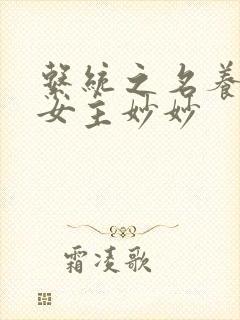 繫統之名養
女主妙妙
霜凌歌